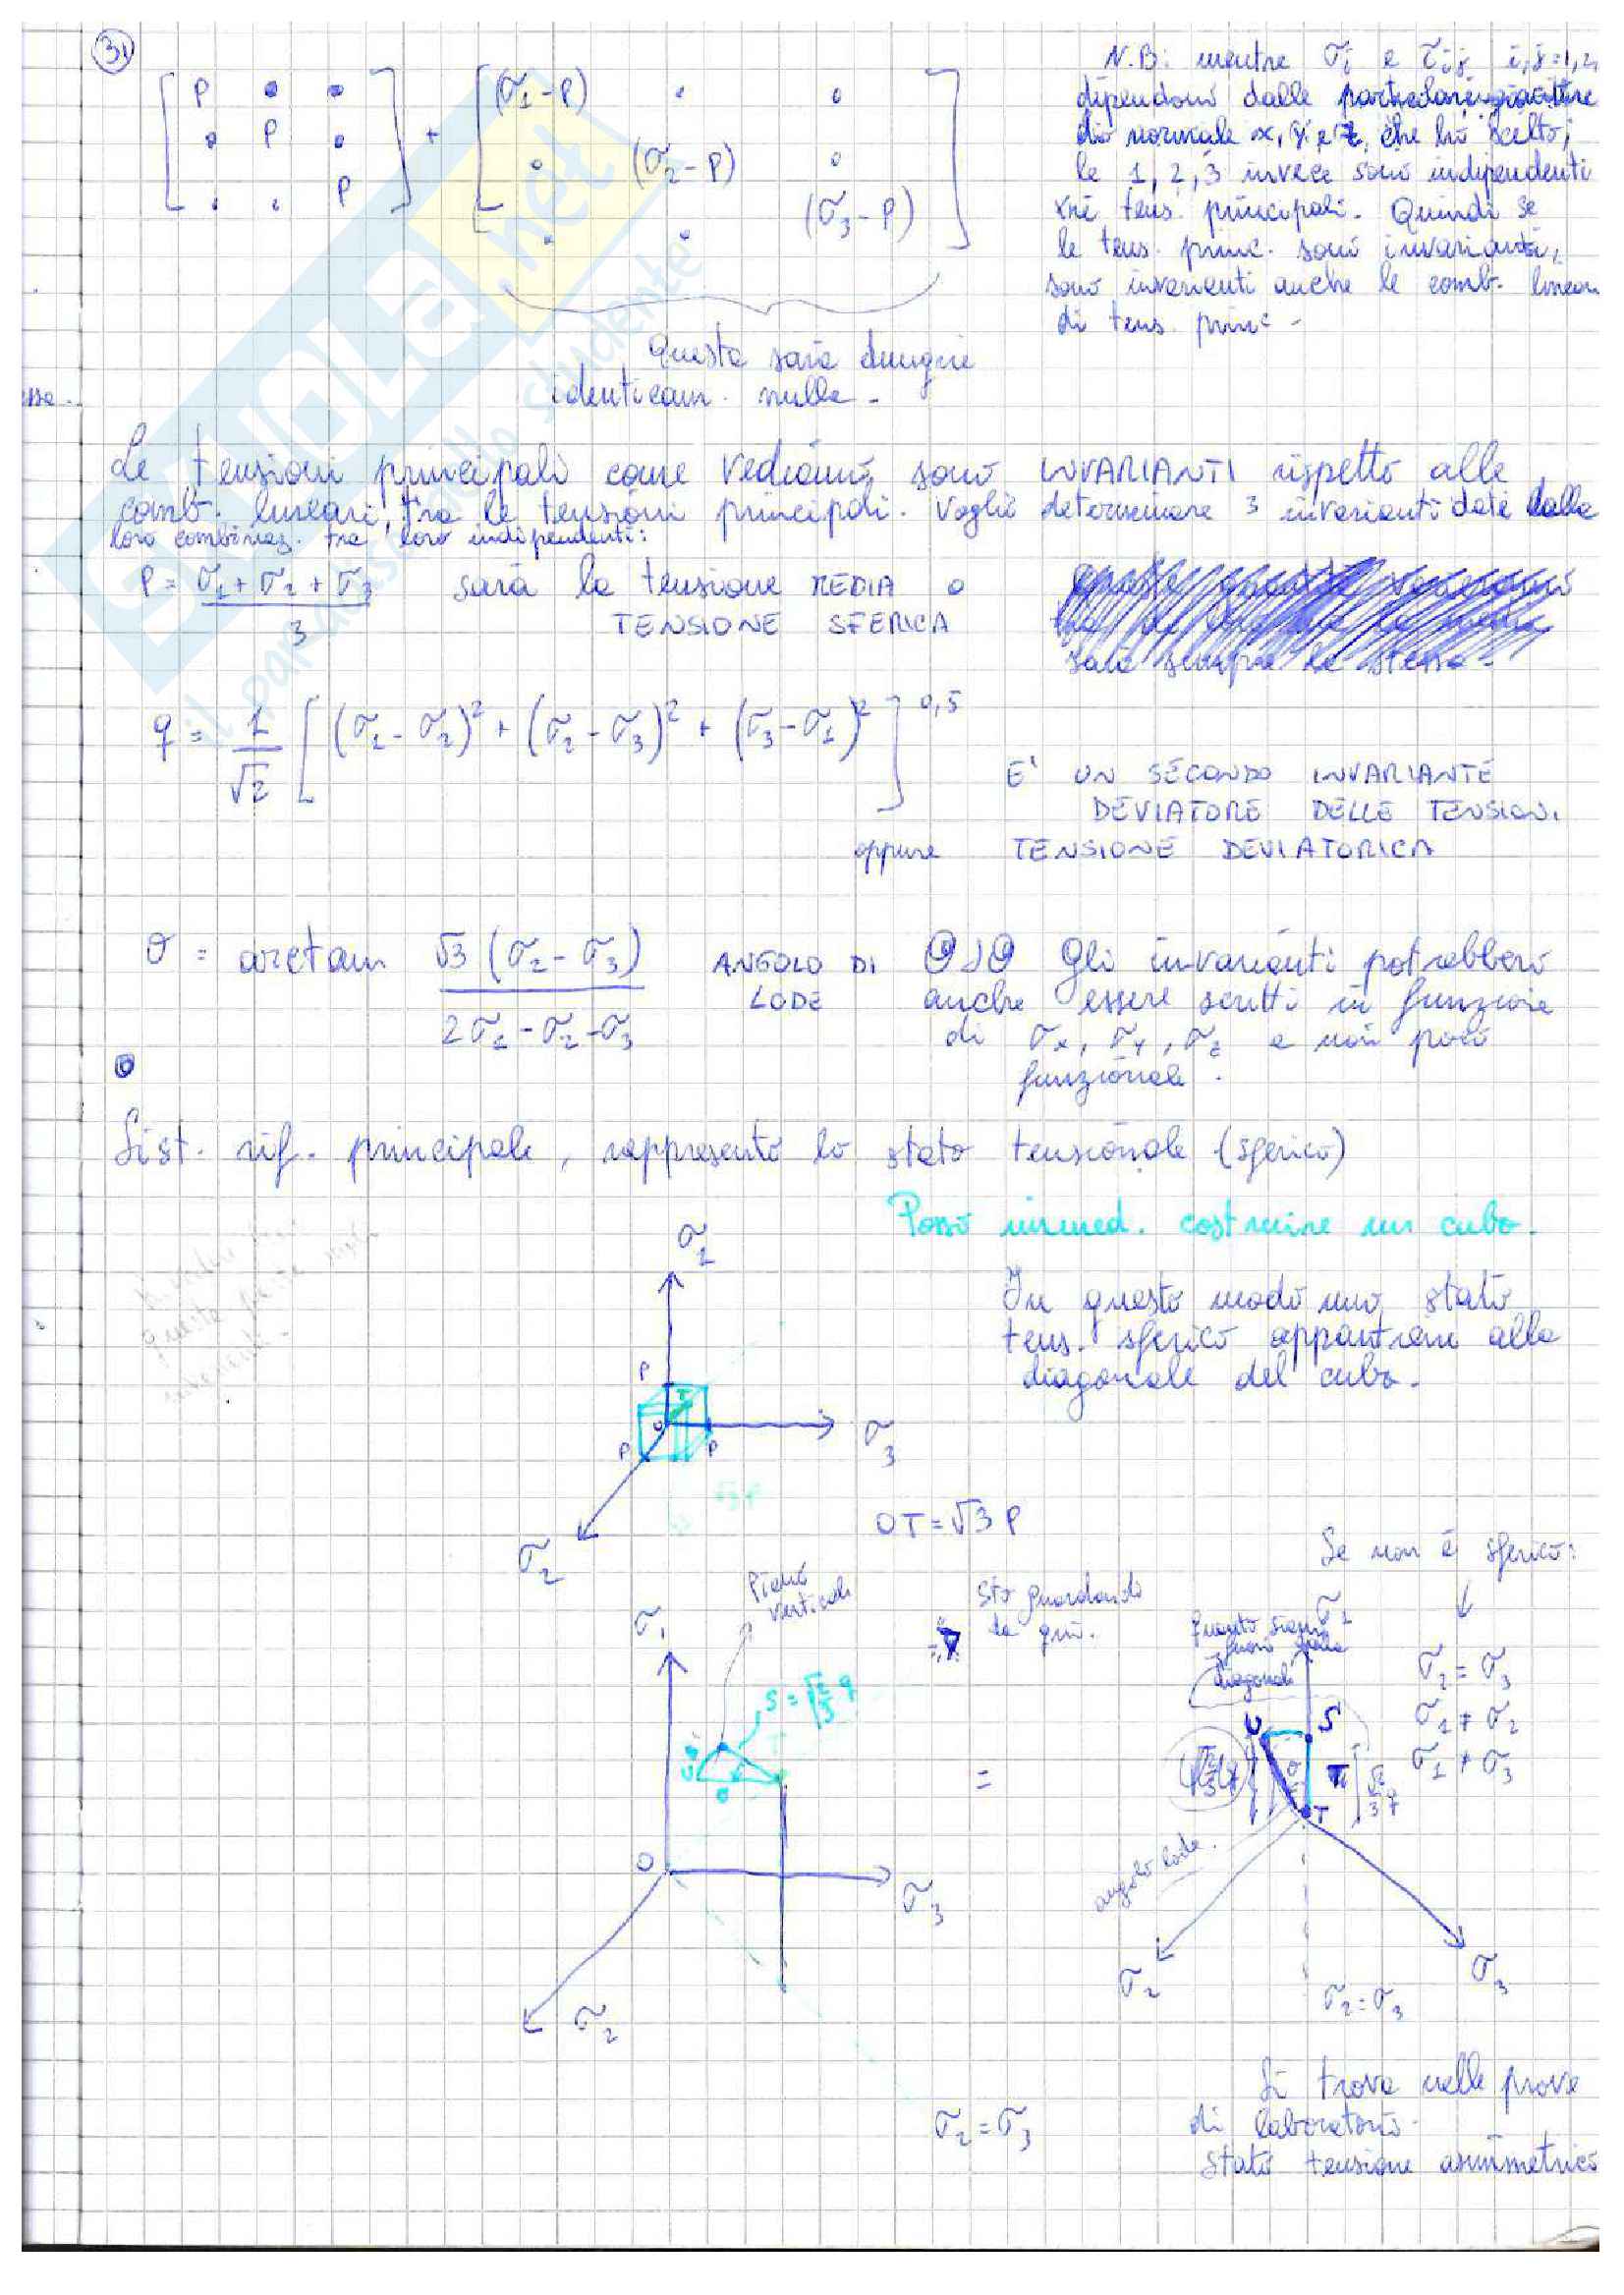 31
[ P • • ] + [ (σ1-P) • o ]
[ o P o ] [ o (σ2-P) o ]
[ • • P ] [ • • (σ3-P) ]
N.B: mentre σi e τij i,j=1,2,
dipendono dalle particolari giaciture
di normale x, y e z, che ho scelto;
le 1, 2, 3 invece sono indipendenti
tens. principali. Quindi se
le tens. princ. sono invarianti,
sono invarianti anche le comb. linear
di tens. princ.
Questa sarà dunque
identicam. nulla.
Le tensioni principali come vediamo sono INVARIANTI rispetto alle
comb. lineari, tra le tensioni principali. Voglio determinare 3 invarianti dati dalla
loro combinaz. tra loro indipendenti:
P = σ1 + σ2 + σ3 / 3 sarà la tensione MEDIA o
TENSIONE SFERICA
sarà sempre la stessa.
q = 1/√2 [ (σ1-σ2)² + (σ2-σ3)² + (σ3-σ1)² ]^0,5
E' UN SECONDO INVARIANTE
DEVIATORE DELLE TENSIONI
oppure TENSIONE DEVIATORICA
θ = arctan √3 (σ2-σ3) / 2σ1-σ2-σ3 ANGOLO DI
LODE
Gli invarianti potrebbero
anche essere scritti in funzione
di σx, σy, σz e non poco
funzionale.
Sist. rif. principale, rappresento lo stato tensionale (sferico)
Posso immed. costruire un cubo.
σ2
In questo modo uno stato
tens. sferico appartiene alla
diagonale del cubo.
P
T
O
P
P
σ3
√3 P
σ2
OT = √3 P
Se non è sferico:
Piano
verticale
Sto guardando
da qui.
σ1
S = √2/3 q
U
θ
O
σ3
σ2
=
σ1
quanto siamo
fuori dalla
diagonale
σ2 = σ3
σ1 ≠ σ2
σ1 ≠ σ3
U
S
T
√2/3 q
angolo Lode.
σ2
σ3
σ2=σ3
σ2=σ3
Si trova nelle prove
di laboratorio.
Stato tensione asimmetrico